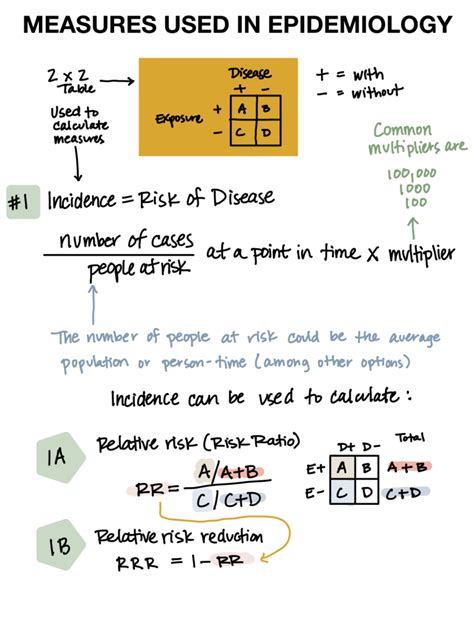 MEASURES USED IN EPIDEMIOLOGY
2 x 2
Table
Used to
calculate
measures
Disease
+ -
Exposure
+ A B
- C D
+ = with
- = without
Common
multipliers are
100,000
1000
100
#1 Incidence = Risk of Disease
number of cases
people at risk
at a point in time x multiplier
The number of people at risk could be the average
population or person-time (among other options)
Incidence can be used to calculate:
1A
Relative risk (Risk Ratio)
RR = A/A+B
C/C+D
D+ D- Total
E+ A B A+B
E- C D C+D
1B
Relative risk reduction
RRR = 1 - RR